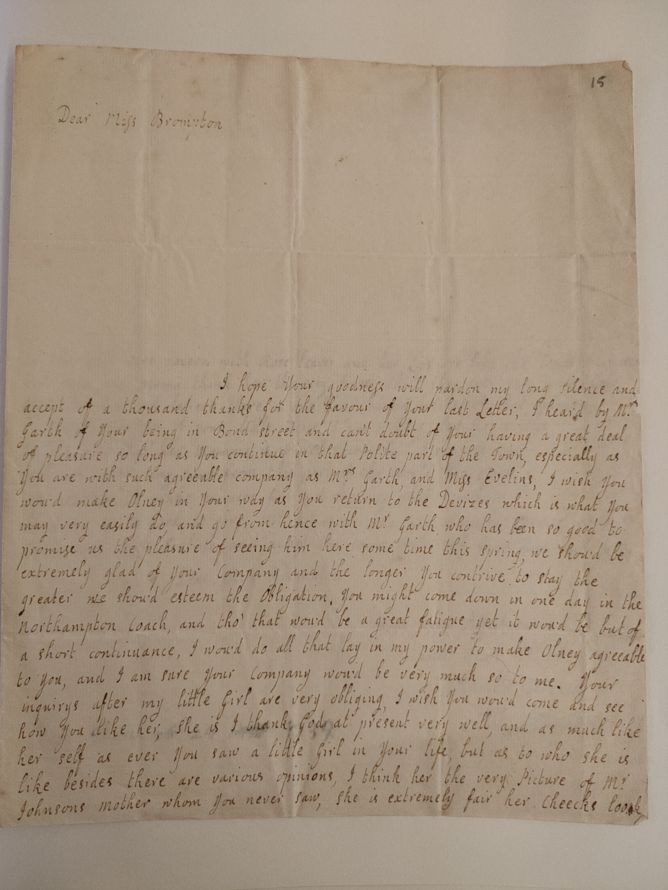 15
Dear Miss Brompton
I hope Your goodness will pardon my long silence and
accept of a thousand thanks for the favour of Your last Letter, I heard by Mr
Garth of Your being in Bond street and can't doubt of Your having a great deal
of pleasure so long as You continue in that Polite part of the Town, especially as
You are with such agreeable company as Mrs Garth, and Miss Evelins, I wish You
wou'd make Olney in Your way as You return to the Devizes which is what You
may very easily do, and go from hence with Mr Garth who has been so good to
promise us the pleasure of seeing him here some time this spring, we shou'd be
extremely glad of Your Company and the longer You contrive to stay the
greater we shou'd esteem the Obligation, You might come down in one day in the
Northampton Coach, and tho' that wou'd be a great fatigue yet it wou'd be but of
a short continuance, I wou'd do all that lay in my power to make Olney agreeable
to You, and I am sure Your Company wou'd be very much so to me. Your
inquirys after my little Girl are very obliging, I wish You wou'd come and see
how You like her, she is I thank God at present very well, and as much like
her self as ever You saw a little Girl in Your life but as to who she is
like besides there are various opinions, I think her the very Picture of Mr
Johnsons mother whom You never saw, she is extremely fair her Cheecks